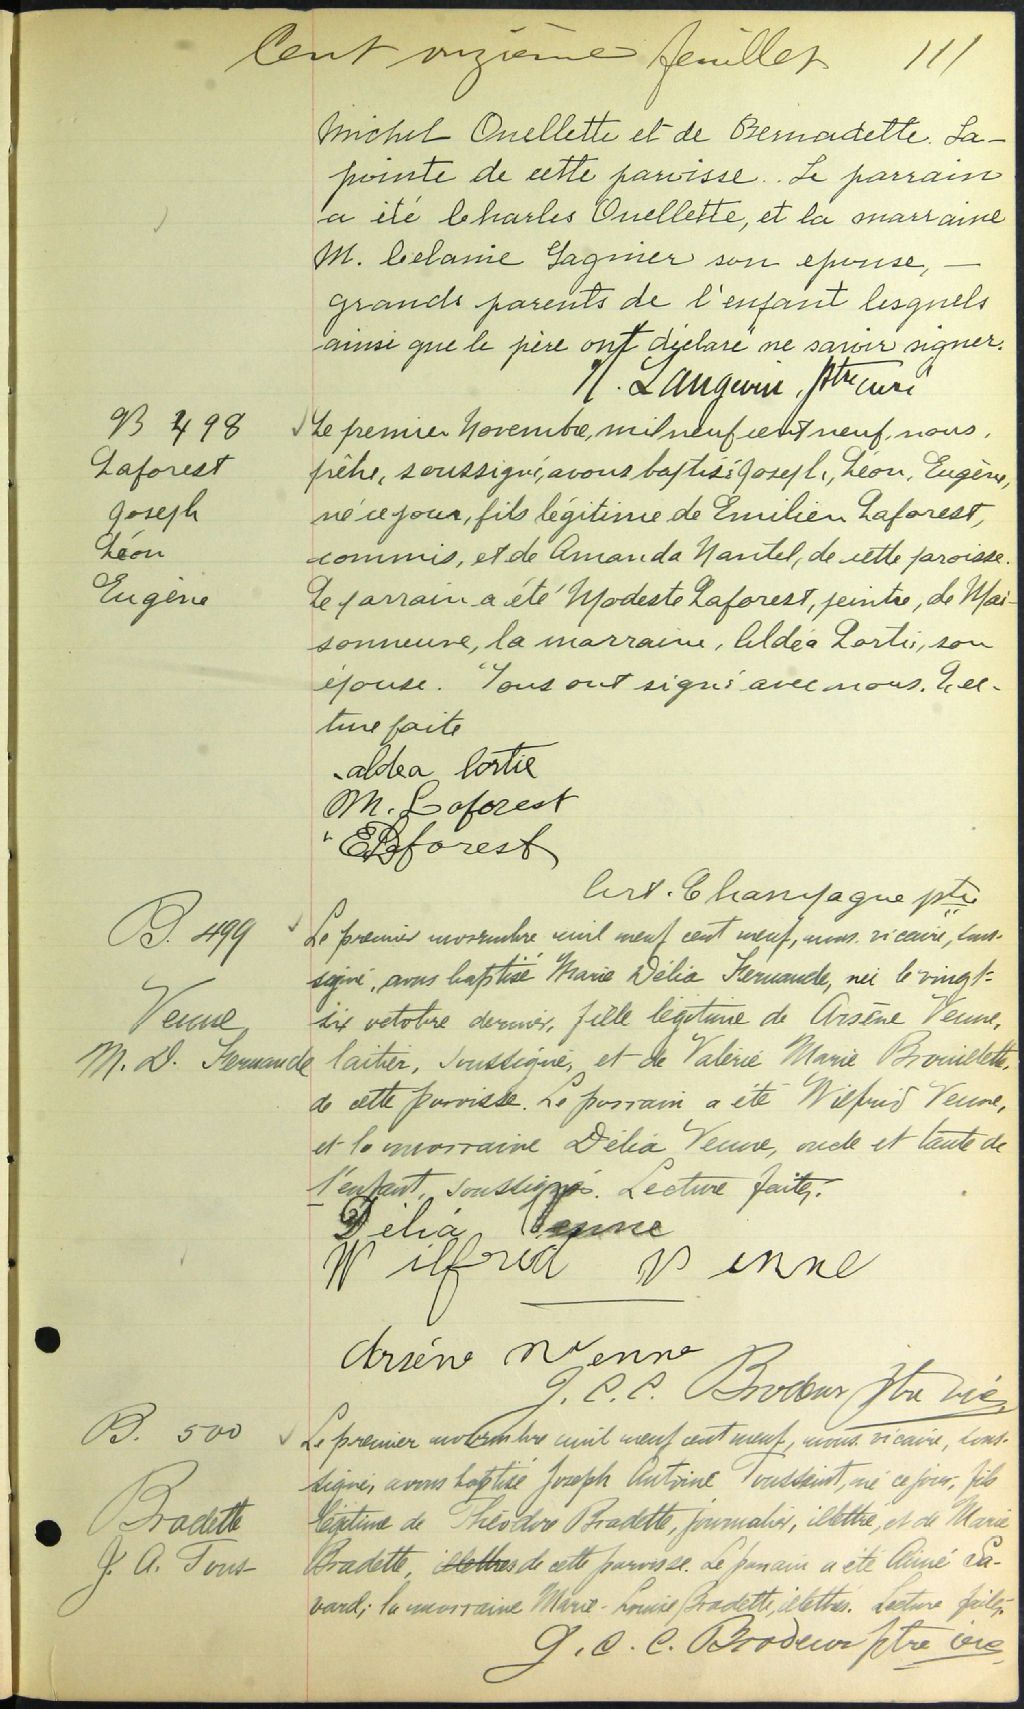 Cent onzième feuillet 111
Michel Ouellette et de Bernadette La-
pointe de cette paroisse. Le parrain
a été Charles Ouellette, et la marraine
M. Celanie Gagnier son epouse, —
grands parents de l'enfant lesquels
ainsi que le père ont déclaré ne savoir signer.
Langevin, ptre curé
B 498
Laforest
Joseph
Léon
Eugène
Le premier Novembre, mil neuf cent neuf, nous,
prêtre, soussigné, avons baptisé Joseph, Léon, Eugène,
né ce jour, fils légitime de Emilien Laforest,
commis, et de Amanda Nantel, de cette paroisse.
Le parrain a été Modeste Laforest, peintre, de Mai-
sonneuve, la marraine, Aldéa Lortie, son
épouse. Tous ont signé avec nous. Lec-
ture faite
aldea lortie
M. Laforest
E Laforest
Art. Champagne ptre
B. 499
Venne
M. D. Fernande
Le premier novembre mil neuf cent neuf, nous vicaire, sous-
signé, avons baptisé Marie Délia Fernande, née le vingt-
six octobre dernier, fille légitime de Arsène Venne,
laitier, soussigné, et de Valérie Marie Brouillette,
de cette paroisse. Le parrain a été Wilfrid Venne,
et la marraine Délia Venne, oncle et tante de
l'enfant, soussignés. Lecture faite.
Délia Venne
Wilfred Venne
Arsène Venne
J. C. C. Brodeur ptre vic.
B. 500
Bradette
J. A. Tous-
Le premier novembre mil neuf cent neuf, nous vicaire, sous-
signé, avons baptisé Joseph Antoine Toussaint, né ce jour, fils
légitime de Théodore Bradette, journalier, illettré, et de Marie
Bradette, illettrés de cette paroisse. Le parrain a été Aimé Sa-
vard; la marraine Marie-Louise Bradette, illettrés. Lecture faite.
J. C. C. Brodeur ptre vic.